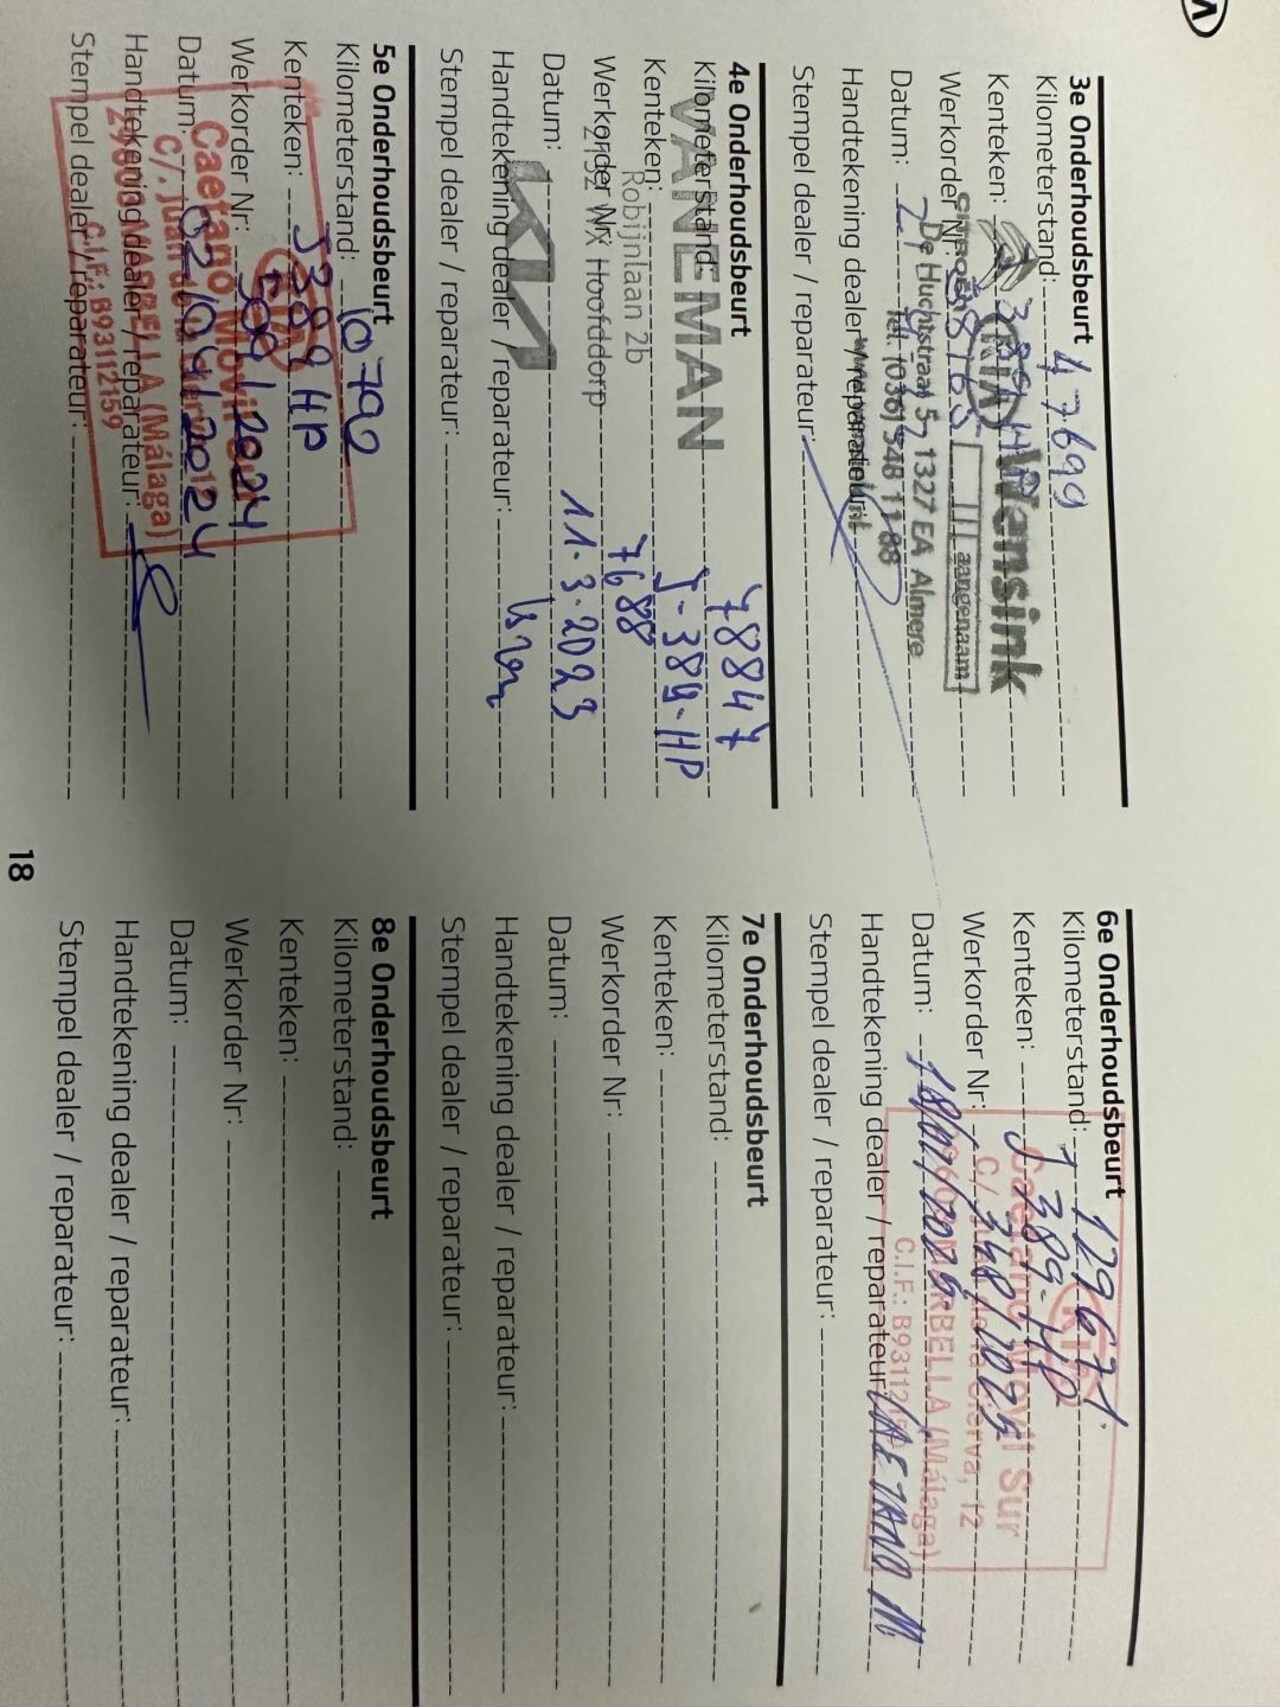 3e Onderhoudsbeurt
Kilometerstand: 47699
Kenteken: J389HP
Wensink
Werkorder Nr: 38165
CITROËN KIA aangenaam
De Huchtstraat 5-7 1327 EA Almere
Datum: 2
Tel. (036) 548 11 88
Handtekening dealer / reparateur:
Stempel dealer / reparateur:
4e Onderhoudsbeurt
Kilometerstand: 78847
VANEMAN
Kenteken: J-389-HP
Robijnlaan 2b
Werkorder Nr: 7688
2132 WX Hoofddorp
Datum: 11.3.2023
KIA
Handtekening dealer / reparateur:
Stempel dealer / reparateur:
5e Onderhoudsbeurt
Kilometerstand: 10792
Kenteken: J389HP
KIA
Werkorder Nr: 509/2024
Caetano Movil Sur
Datum: 02/04/2024
C/. Juan de la Cierva, 12
Handtekening dealer / reparateur:
29603 MARBELLA (Málaga)
Stempel dealer / reparateur:
C.I.F.: B93112159
6e Onderhoudsbeurt
Kilometerstand: 129671.
KIA
Kenteken: J-389-HP
Caetano Movil Sur
Werkorder Nr: 748/2025
C/. Juan de la Cierva, 12
Datum: 18/07/2025.
29603 MARBELLA (Málaga)
Handtekening dealer / reparateur: CAETANO M
C.I.F.: B93112159
Stempel dealer / reparateur:
7e Onderhoudsbeurt
Kilometerstand:
Kenteken:
Werkorder Nr:
Datum:
Handtekening dealer / reparateur:
Stempel dealer / reparateur:
8e Onderhoudsbeurt
Kilometerstand:
Kenteken:
Werkorder Nr:
Datum:
Handtekening dealer / reparateur:
Stempel dealer / reparateur:
18